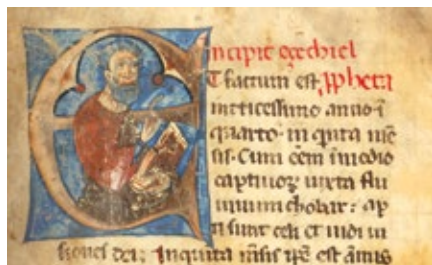 Incipit ezechiel
Et factum est ppheta
in tricessimo anno · i
quarto · in quīta mē
sis · Cum eēm i medio
captiuoꝝ iuxta flu
uium chobar : ap
ti sunt celi et uidi ui
siones dei ; In quīta mēsis ipē est annus